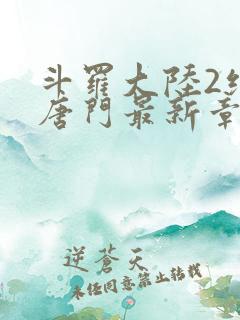 斗羅大陸2
唐門最新章
逆蒼天
未任同意禁止转载